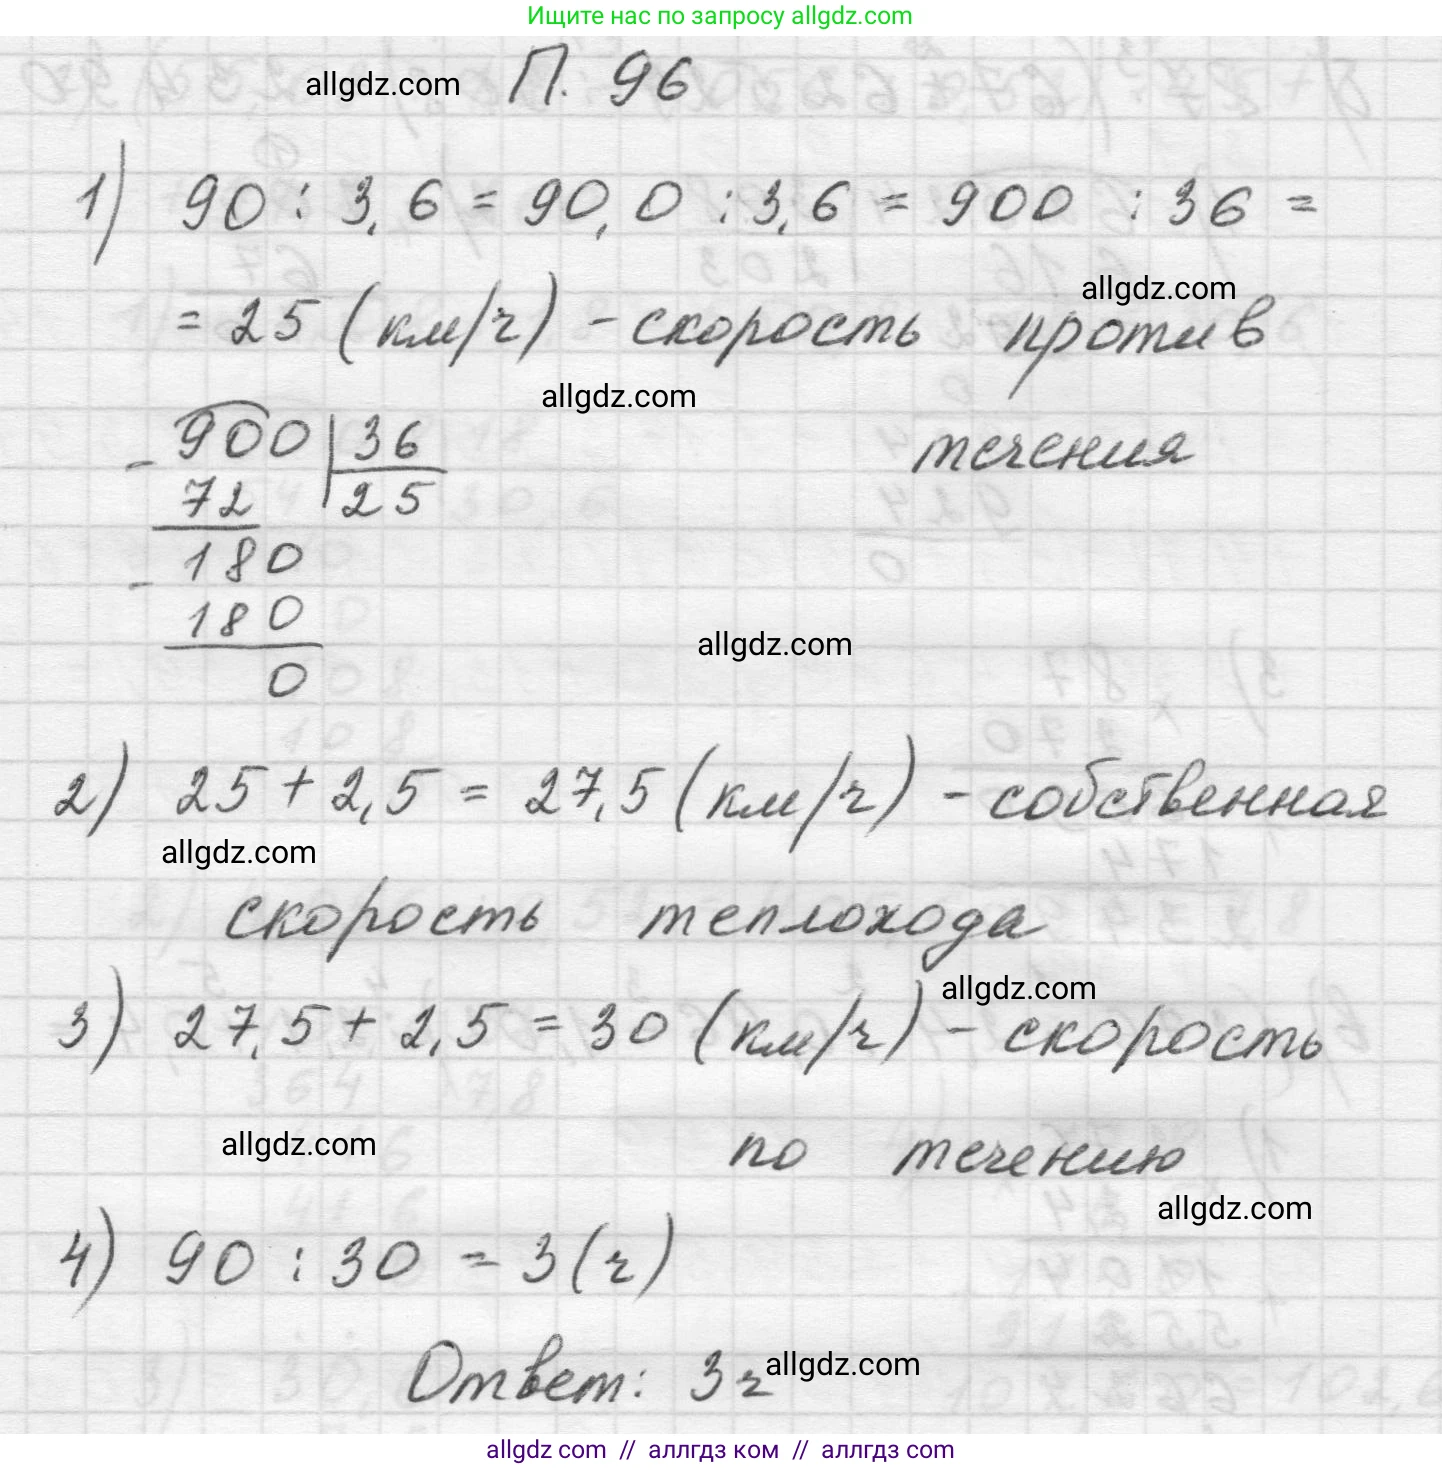 Ищите нас по запросу allgdz.com
allgdz.com П. 96
1) 90 : 3,6 = 90,0 : 3,6 = 900 : 36 =
allgdz.com
= 25 (км/ч) - скорость против
allgdz.com
течения
- 900 | 36
72 | 25
- 180
180
0
allgdz.com
2) 25 + 2,5 = 27,5 (км/ч) - собственная
allgdz.com
скорость теплохода
allgdz.com
3) 27,5 + 2,5 = 30 (км/ч) - скорость
allgdz.com
по течению
allgdz.com
4) 90 : 30 = 3 (ч)
Ответ: 3 ч
allgdz.com
allgdz com // аллгдз ком // аллгдз com